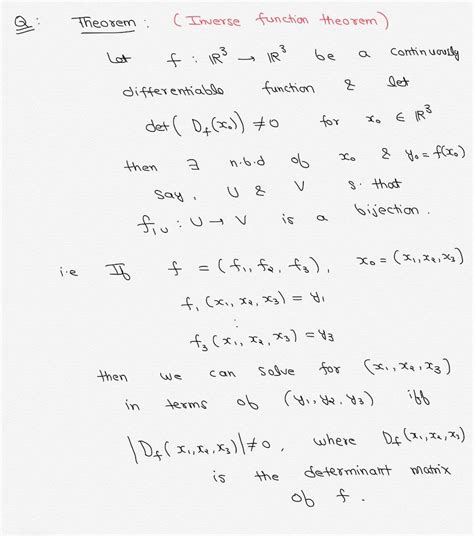 Q: Theorem: (Inverse function theorem)
Let f : ℝ³ → ℝ³ be a continuously
differentiable function & let
det( D_f(x₀)) ≠ 0 for x₀ ∈ ℝ³
then ∃ n.b.d of x₀ & y₀ = f(x₀)
say, U & V s. that
f|_U : U → V is a bijection.
i.e If f = (f₁, f₂, f₃), x₀ = (x₁, x₂, x₃)
f₁ (x₁, x₂, x₃) = y₁
⋮
f₃ (x₁, x₂, x₃) = y₃
then we can solve for (x₁, x₂, x₃)
in terms of (y₁, y₂, y₃) iff
|D_f( x₁, x₂, x₃)| ≠ 0, where D_f (x₁, x₂, x₃)
is the determinant matrix
of f.